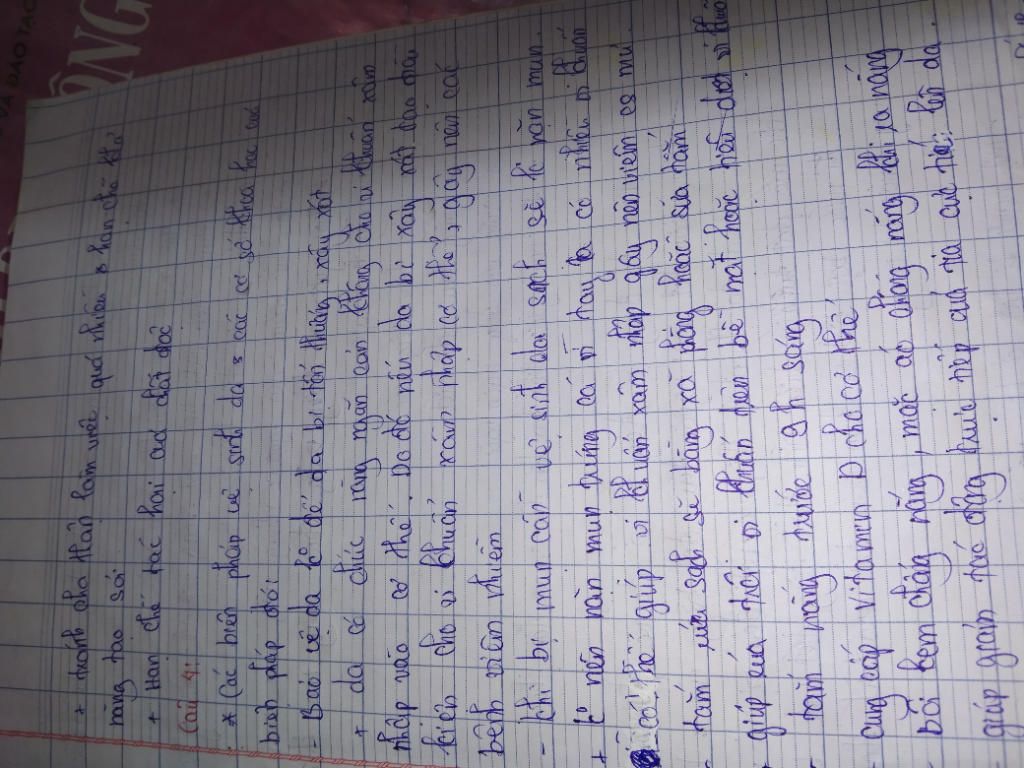 VÀ ĐÀO TẠO
ÔNG
+ tránh cho thận làm việc quá nhiều & hạn chế khả
năng tạo sỏi
+ Hạn chế tác hại của chất độc
Câu 4:
* Các biện pháp vệ sinh da & các cơ sở khoa học của
biện pháp đó:
- Bảo vệ da ko để da bị tổn thương, xây xát
+ da có chức năng ngăn cản không cho vi khuẩn xâm
nhập vào cơ thể. Do đó nếu da bị xây xát tạo điều
kiện cho vi khuẩn xâm nhập cơ thể, gây nên các
bệnh viêm nhiễm
- khi bị mụn cần vệ sinh da sạch sẽ ko nặn mụn.
+ ko nên nặn mụn trứng cá vì tay ta có nhiều vi khuẩn
có thể giúp vi khuẩn xâm nhập gây nên viêm có mủ.
tắm rửa sạch sẽ bằng xà phòng hoặc sữa tắm
giúp rửa trôi vi khuẩn trên bề mặt hoặc tiêu diệt vi khuẩn
tắm nắng trước 9h sáng
cung cấp vitamin D cho cơ thể
bôi kem chống nắng, mặc áo chống nắng khi ra nắng
giúp giảm tác động trực tiếp của tia cực tím lên da.